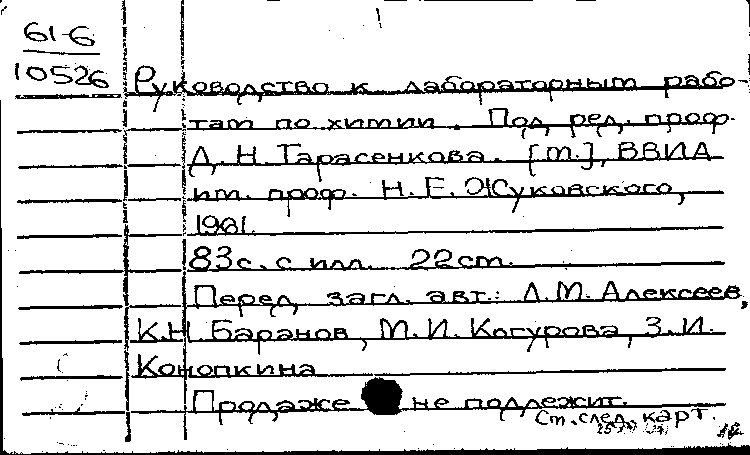 61-6
10526
Руководство к лабораторным рабо-
там по химии. Под ред. проф.
Д. Н. Тарасенкова. [М.], ВВИА
им. проф. Н. Е. Жуковского,
1961.
83 с. с илл. 22 см.
Перед загл. авт.: А. М. Алексеев,
К.Н. Баранов, М. И. Кагурова, З. И.
Конопкина
Продаже не подлежит.
См. след. карт.